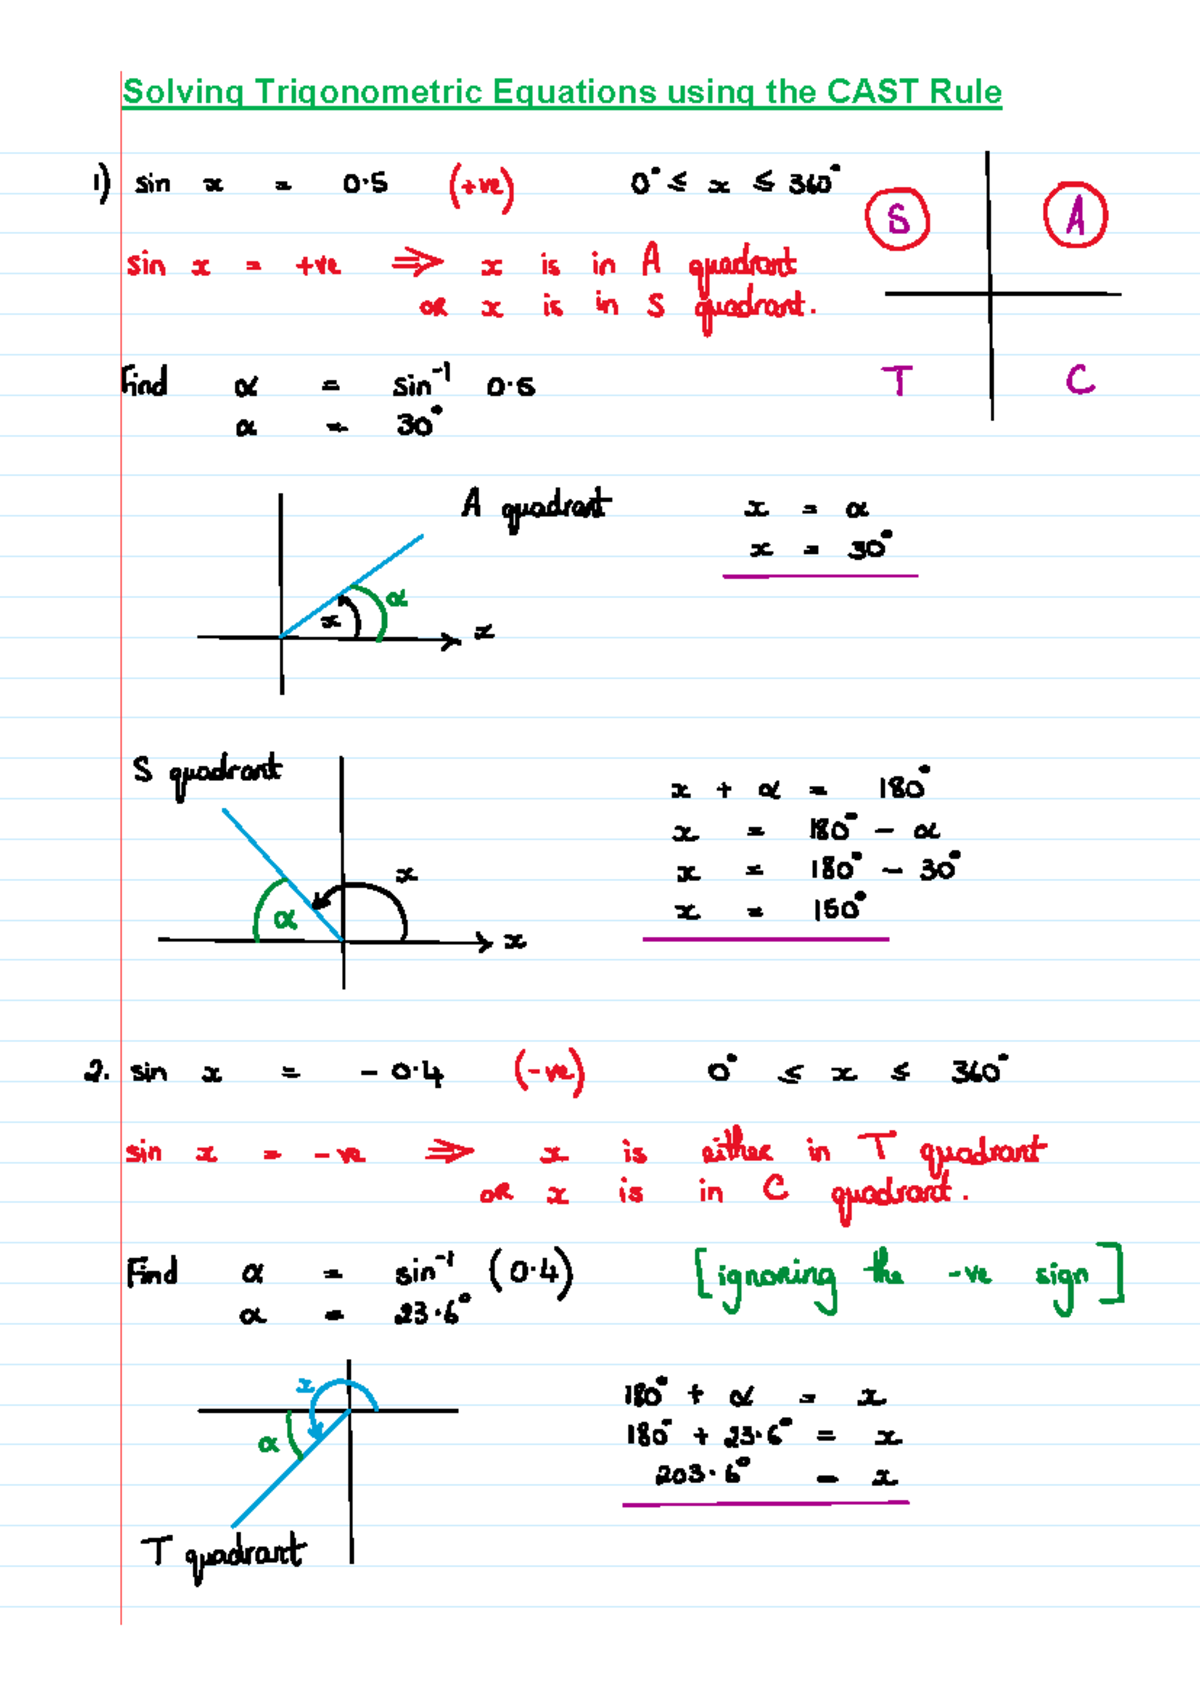 Solving Trigonometric Equations using the CAST Rule
1) sin x = 0.5 (+ve) 0° ≤ x ≤ 360°
S A
sin x = +ve ⇒ x is in A quadrant
OR x is in S quadrant.
T C
Find α = sin⁻¹ 0.5
α = 30°
A quadrant
x = α
x = 30°
α
x
x
S quadrant
x + α = 180°
x = 180° - α
x = 180° - 30°
x = 150°
x
α
x
2. sin x = - 0.4 (-ve) 0° ≤ x ≤ 360°
sin x = -ve ⇒ x is either in T quadrant
OR x is in C quadrant.
Find α = sin⁻¹ (0.4) [ignoring the -ve sign]
α = 23.6°
x
α
180° + α = x
180° + 23.6° = x
203.6° = x
T quadrant